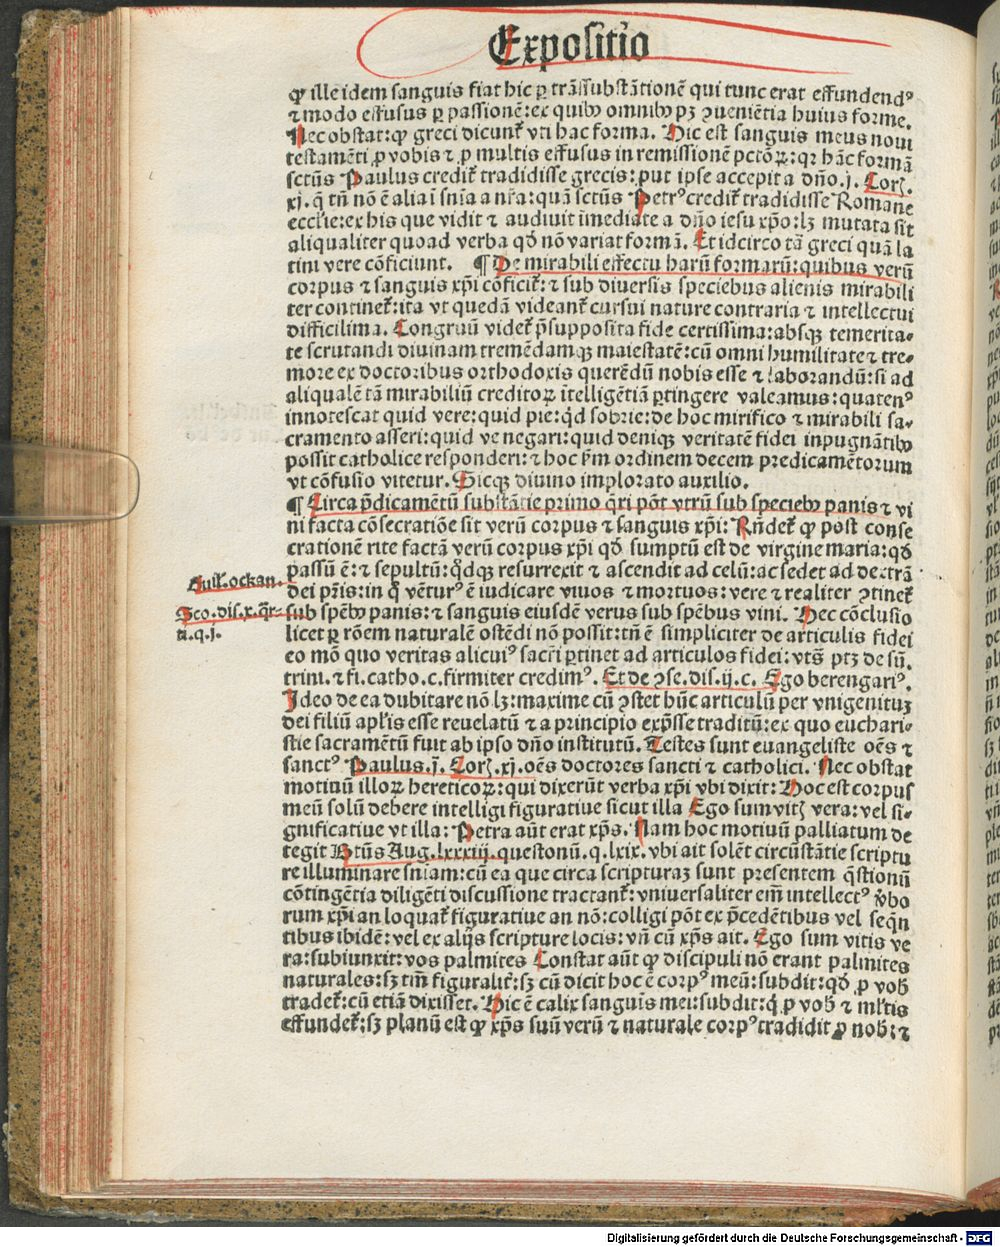 Expositio
ꝙ ille idem sanguis fiat hic ꝑ trãssubstãtionẽ qui tunc erat effundendꝰ
⁊ modo effusus ꝑ passionẽ: ex quibꝫ omnibꝫ pꝫ ꝯueniẽtia huius forme.
Nec obstat: ꝙ greci dicunt᷑ vti hac forma. Hic est sanguis meus noui
testamẽti ꝓ vobis ⁊ ꝓ multis effusus in remissionẽ pctõꝝ: qꝛ hãc formã
sctũs Paulus credit᷑ tradidisse grecis: put ipse accepit a dño. j. Corꝭ.
xj. q̃ tñ nõ ẽ alia ĩ snĩa a nr̃a: quã sctũs Petrꝰ credit᷑ tradidisse Romane
ecclĩe: ex his que vidit ⁊ audiuit ĩmediate a dño iesu xp̃o: lꝫ mutata sit
aliqualiter quoad verba qđ nõ variat formã. Et idcirco tã greci quã la
tini vere cõficiunt. ¶ De mirabili effectu harũ formarũ: quibus verũ
corpus ⁊ sanguis xp̃i cõficit᷑: ⁊ sub diuersis speciebus alienis mirabili
ter continet᷑: ita vt quedã videant᷑ cursui nature contraria ⁊ intellectui
difficilima. Congruũ videt᷑ p̃supposita fide certissima: absqꝫ temerita-
te scrutandi diuinam tremẽdamqꝫ maiestatẽ: cũ omni humilitate ⁊ tre-
more ex doctoribus orthodoxis querẽdũ nobis esse ⁊ laborandũ: si ad
aliqualẽ tã mirabiliũ creditoꝝ ĩtelligẽtiã ꝑtingere valeamus: quatenꝰ
innotescat quid vere: quid pie: qđ sobrie: de hoc mirifico ⁊ mirabili sa-
cramento asseri: quid ve negari: quid deniqꝫ veritatẽ fidei inpugnãtibꝫ
possit catholice responderi: ⁊ hoc ẜm ordinem decem predicamẽtorum
vt cõfusio vitetur. Sicqꝫ diuino implorato auxilio.
¶ Circa p̃dicamẽtũ substãtie primo q̃ri põt vtrũ sub speciebꝫ panis ⁊ vi
ni facta cõsecratiõe sit verũ corpus ⁊ sanguis xp̃i: Rñdet᷑ ꝙ post conse
crationẽ rite factã verũ corpus xp̃i qđ sumptũ est de virgine maria: qđ
passũ ẽ: ⁊ sepultũ: qđqꝫ resurrexit ⁊ ascendit ad celũ: ac sedet ad dextrã
Guil. ockan.
dei pr̃is: in q̃ vẽturꝰ ẽ iudicare viuos ⁊ mortuos: vere ⁊ realiter ꝯtinet᷑
Sco. dis. x. qr̃-
sub spẽbꝫ panis: ⁊ sanguis eiusdẽ verus sub spẽbus vini. Hec cõclusio
ti. q. j.
licet ꝑ rõem naturalẽ ostẽdi nõ possit: tñ ẽ simpliciter de articulis fidei
eo mõ quo veritas alicuiꝰ sacr̃i ꝑtinet ad articulos fidei: vts̃ ptꝫ de sũ.
trini. ⁊ fi. catho. c. firmiter credimꝰ. Et de ꝯse. dis. ij. c. Ego berengariꝰ.
Ideo de ea dubitare nõ lꝫ: maxime cũ ꝯstet hũc articulũ per vnigenituꝫ
dei filiũ apl̃is esse reuelatũ ⁊ a principio exp̃sse traditũ: ex quo euchari-
stie sacramẽtũ fuit ab ipso dño institutũ. Testes sunt euangeliste oẽs ⁊
sanctꝰ Paulus. j. Corꝭ. xj. oẽs doctores sancti ⁊ catholici. Nec obstat
motiuũ illoꝝ hereticoꝝ: qui dixerũt verba xp̃i vbi dixit: Hoc est corpus
meũ solũ debere intelligi figuratiue sicut illa Ego sum vitꝭ vera: vel si-
gnificatiue vt illa: Petra aũt erat xp̃s. Nam hoc motiuũ palliatum de
tegit Btũs Aug. lxxxiij. questonũ. q. lxix. vbi ait solẽt circũstãtie scriptu
re illuminare sniam: cũ ea que circa scripturaꝫ sunt presentem q̃stionũ
cõtingẽtia diligẽti discussione tractant᷑: vniuersaliter em̃ intellectꝰ v̾bo
rum xp̃i an loquat᷑ figuratiue an nõ: colligi põt ex p̃cedẽtibus vel seq̃n
tibus ibidẽ: vel ex alijs scripture locis: vñ cũ xp̃s ait. Ego sum vitis ve
ra: subiunxit: vos palmites Constat aũt ꝙ discipuli nõ erant palmites
naturales: sꝫ tm̃ figuralit᷑: sꝫ cũ dicit hoc ẽ corpꝰ meũ: subdit: qđ ꝓ vobꝭ
tradet᷑: cũ etiã dixisset. Hic ẽ calix sanguis mei: subdit: q̃ ꝓ vobꝭ ⁊ ml̃tis
effundet᷑: sꝫ planũ est ꝙ xp̃s suũ verũ ⁊ naturale corpꝰ tradidit ꝓ nobꝭ: ⁊
Digitalisierung gefördert durch die Deutsche Forschungsgemeinschaft - DFG